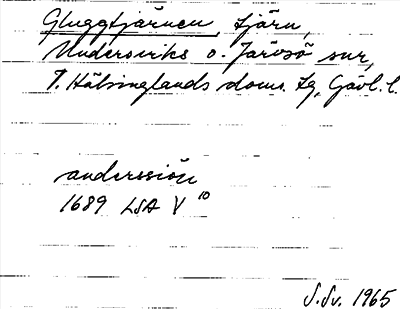 Gluggtjärnen, tjärn,
Undersviks o. Järvsö snr,
V. Hälsinglands doms. tg, Gävl. l.
anderssiön
1689 LSA V 10
S.Sv. 1965